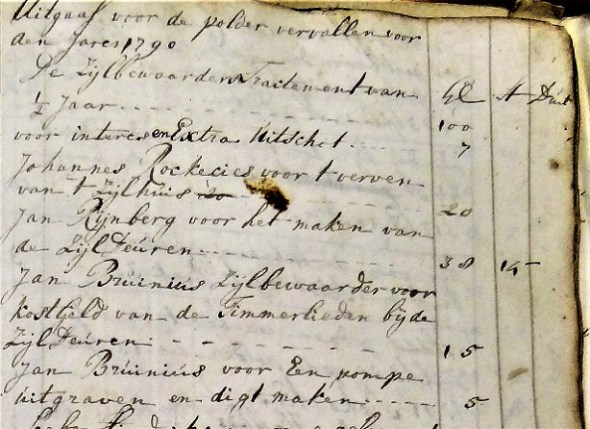 Uitgaaf voor de polder vervallen voor
den Jare 1790
De Zijlbewaarders Traitement van Gl St Duit
½ Jaar 100
voor interes en Extra Uitschot 7
Johannes voor t verven
van t Zijlhuis 20
Jan Rijnberg voor het maken van
de Zijl Deuren 38 15
Jan Bruinius Zijlbewaarder voor
kostgeld van de Timmerlieden bij de
Zijl Deuren 15
Jan Bruinius voor Een pompe
uitgraven en digt maken 5